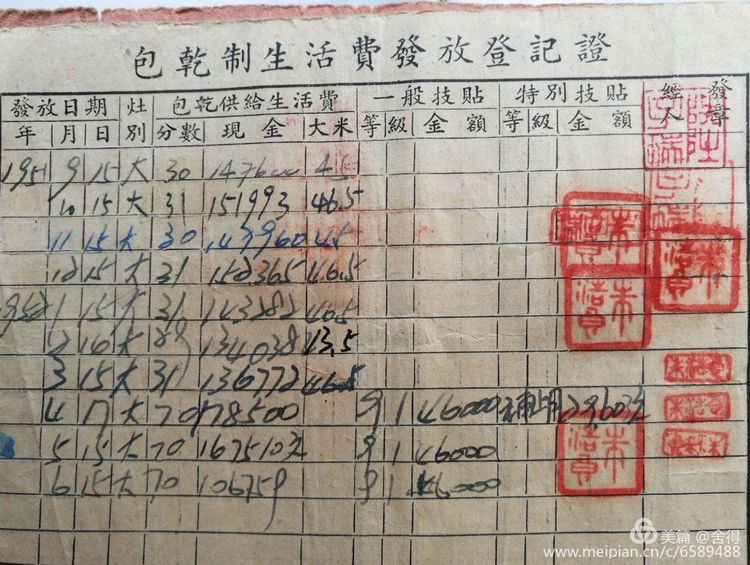 包乾制生活費發放登記證
發放日期 灶別 包乾供給生活費 一般技貼 特別技貼 經人 發章
年 月 日 分數 現金 大米 等 級 金額 等 級 金額
1951 9 15 大 30 45
10 15 大 31 151993 46.5
11 15 大 30 147960 45
12 15 大 31 152365 46.5
1952 1 15 大 31 143282 46.5
2 16 大 29 134038 43.5
3 15 大 31 136772 46.5
4 17 大 70 178500 9 1 46000 29603元
5 15 大 70 167510元 9 1 46000
6 15 大 70 106759 9 1 46000
美篇 @舍得
www.meipian.cn/c/6589488